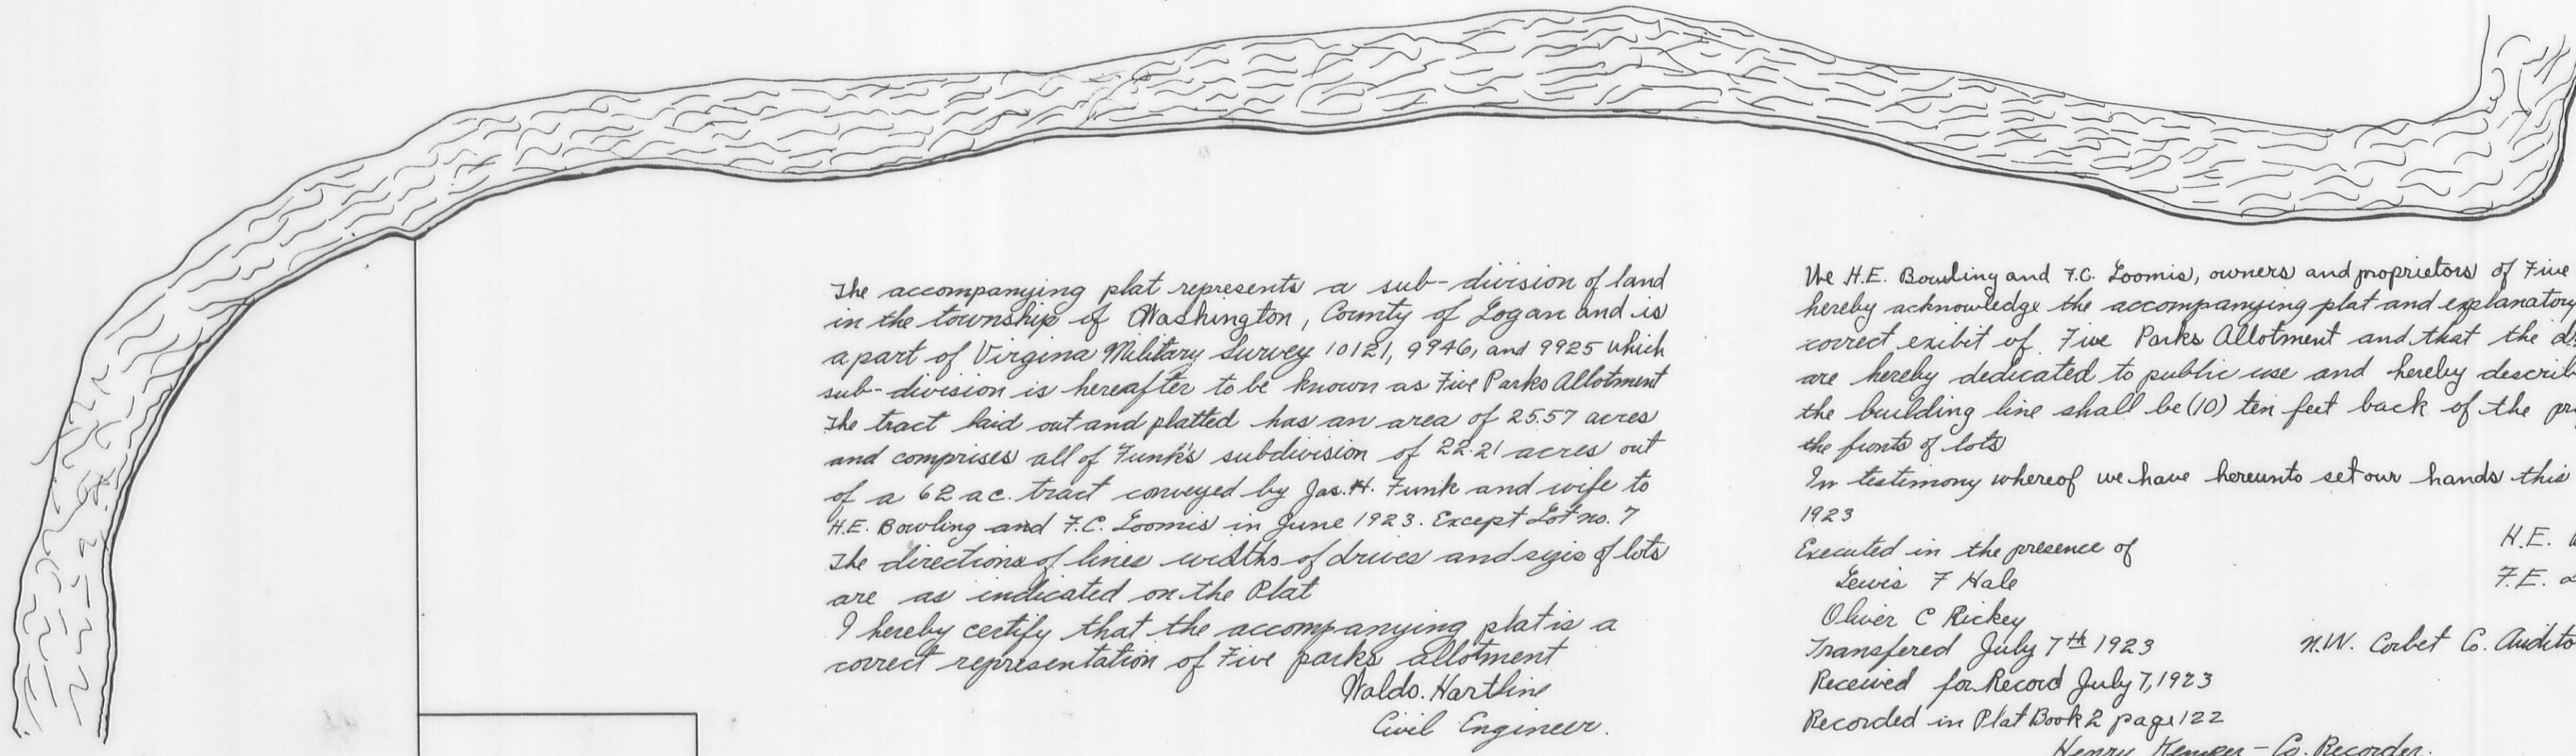 The accompanying plat represents a sub-division of land
in the township of Washington, County of Logan and is
a part of Virgina Military Survey 10121, 9946, and 9925 which
sub-division is hereafter to be known as Five Parks Allotment
The tract laid out and platted has an area of 25.57 acres
and comprises all of Funk's subdivision of 22.21 acres out
of a 62 ac. tract conveyed by Jas. H. Funk and wife to
H.E. Bowling and F.C. Loomis in June 1923. Except Lot no. 7
The directions of lines widths of drives and sizes of lots
are as indicated on the Plat
I hereby certify that the accompanying plat is a
correct representation of Five parks allotment
Waldo. Hartline
Civil Engineer.
We H.E. Bowling and F.C. Loomis, owners and proprietors of Five
hereby acknowledge the accompanying plat and explanatory
correct exibit of Five Parks Allotment and that the
are hereby dedicated to public use and hereby
the building line shall be (10) ten feet back of the
the fronts of lots
In testimony whereof we have hereunto set our hands this
1923
Executed in the presence of
H.E.
Lewis F Hale
F.E.
Oliver C Rickey
Transfered July 7th 1923
N.W. Corbet Co.
Received for Record July 7, 1923
Recorded in Plat Book 2 page 122
Henry Co. Recorder.